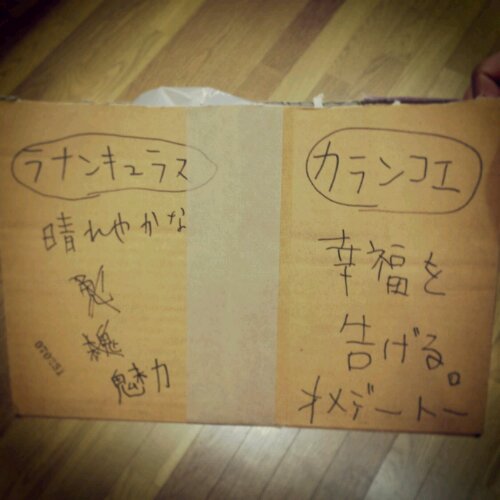 ラナンキュラス
晴れやかな
魅力
070221
カランコエ
幸福を
告げる。
オメデートー